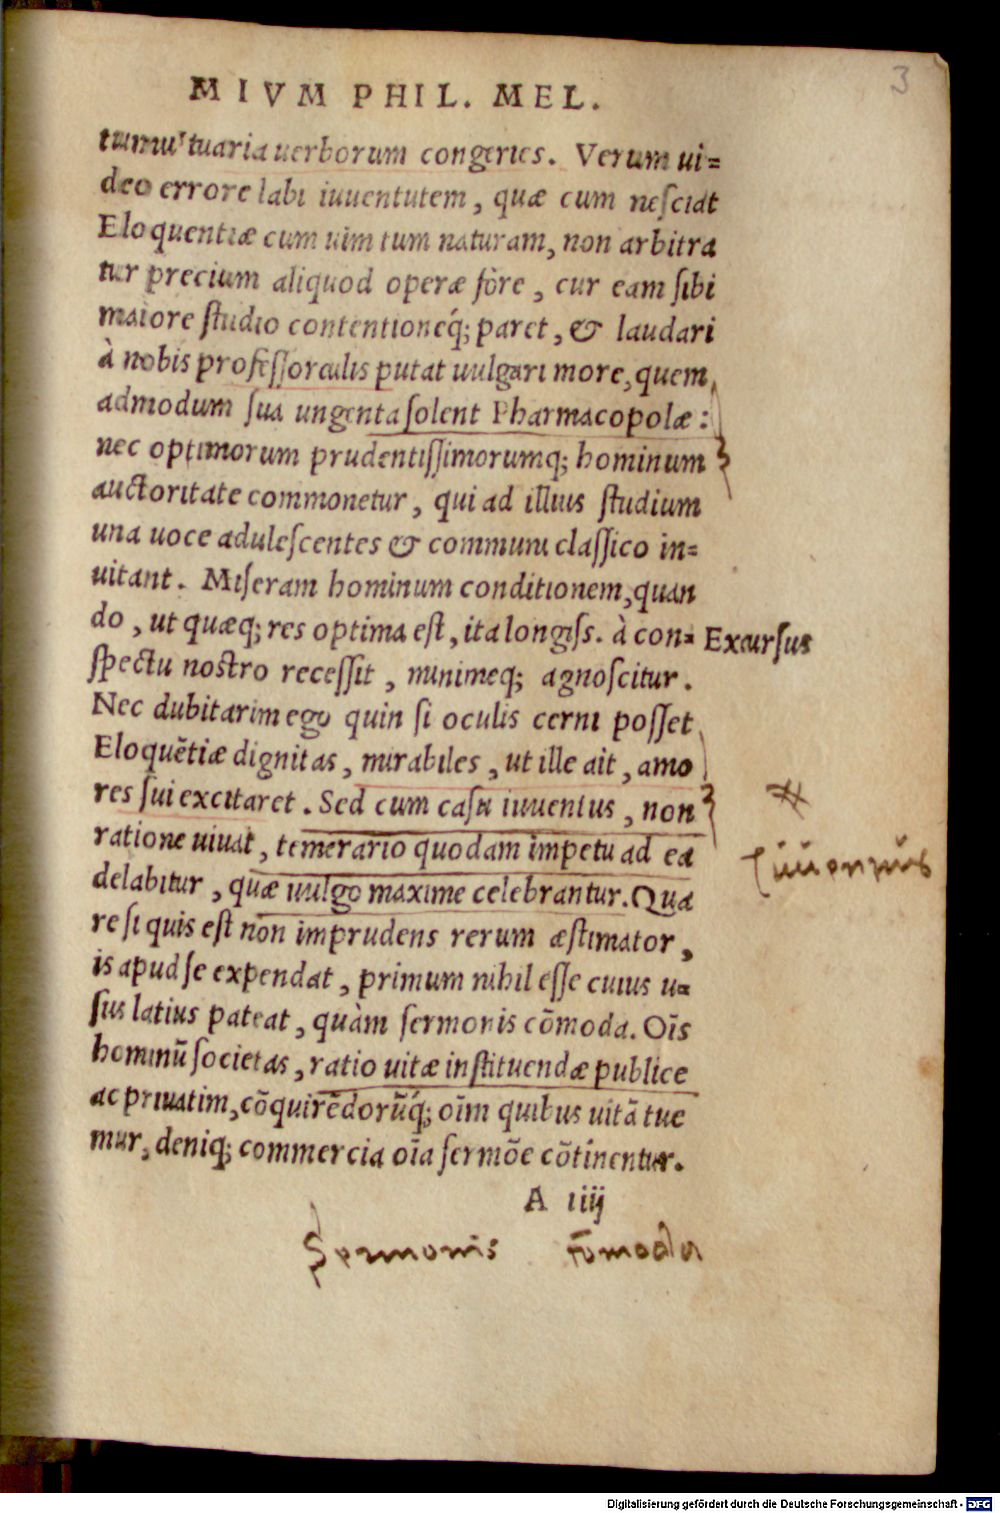 3
MIVM PHIL. MEL.
tumultuaria uerborum congeries. Verum ui=
deo errore labi iuuentutem, quæ cum nesciat
Eloquentiæ cum uim tum naturam, non arbitra
tur precium aliquod operæ fore, cur eam sibi
maiore studio contentioneq́; paret, & laudari
à nobis professorculis putat uulgari more, quem
admodum sua ungenta solent Pharmacopolæ:
nec optimorum prudentissimorumq; hominum
auctoritate commonetur, qui ad illius studium
una uoce adulescentes & communi classico in=
uitant. Miseram hominum conditionem, quan
do, ut quæq; res optima est, ita longiss. à con=
Excursus
spectu nostro recessit, minimeq; agnoscitur.
Nec dubitarim ego quin si oculis cerni posset
Eloquẽtiæ dignitas, mirabiles, ut ille ait, amo
res sui excitaret. Sed cum casu iuuentus, non
ratione uiuat, temerario quodam impetu ad ea
delabitur, quæ uulgo maxime celebrantur. Qua
re si quis est non imprudens rerum æstimator,
is apud se expendat, primum nihil esse cuius u=
sus latius pateat, quàm sermonis cõmoda. Oĩs
hominũ societas, ratio uitæ instituendæ publice
ac priuatim, cõquirẽdorũq́; oĩm quibus uitã tue
mur, deniq; commercia oĩa sermõe cõtinentur.
A iiij
Sermonis cõmoda